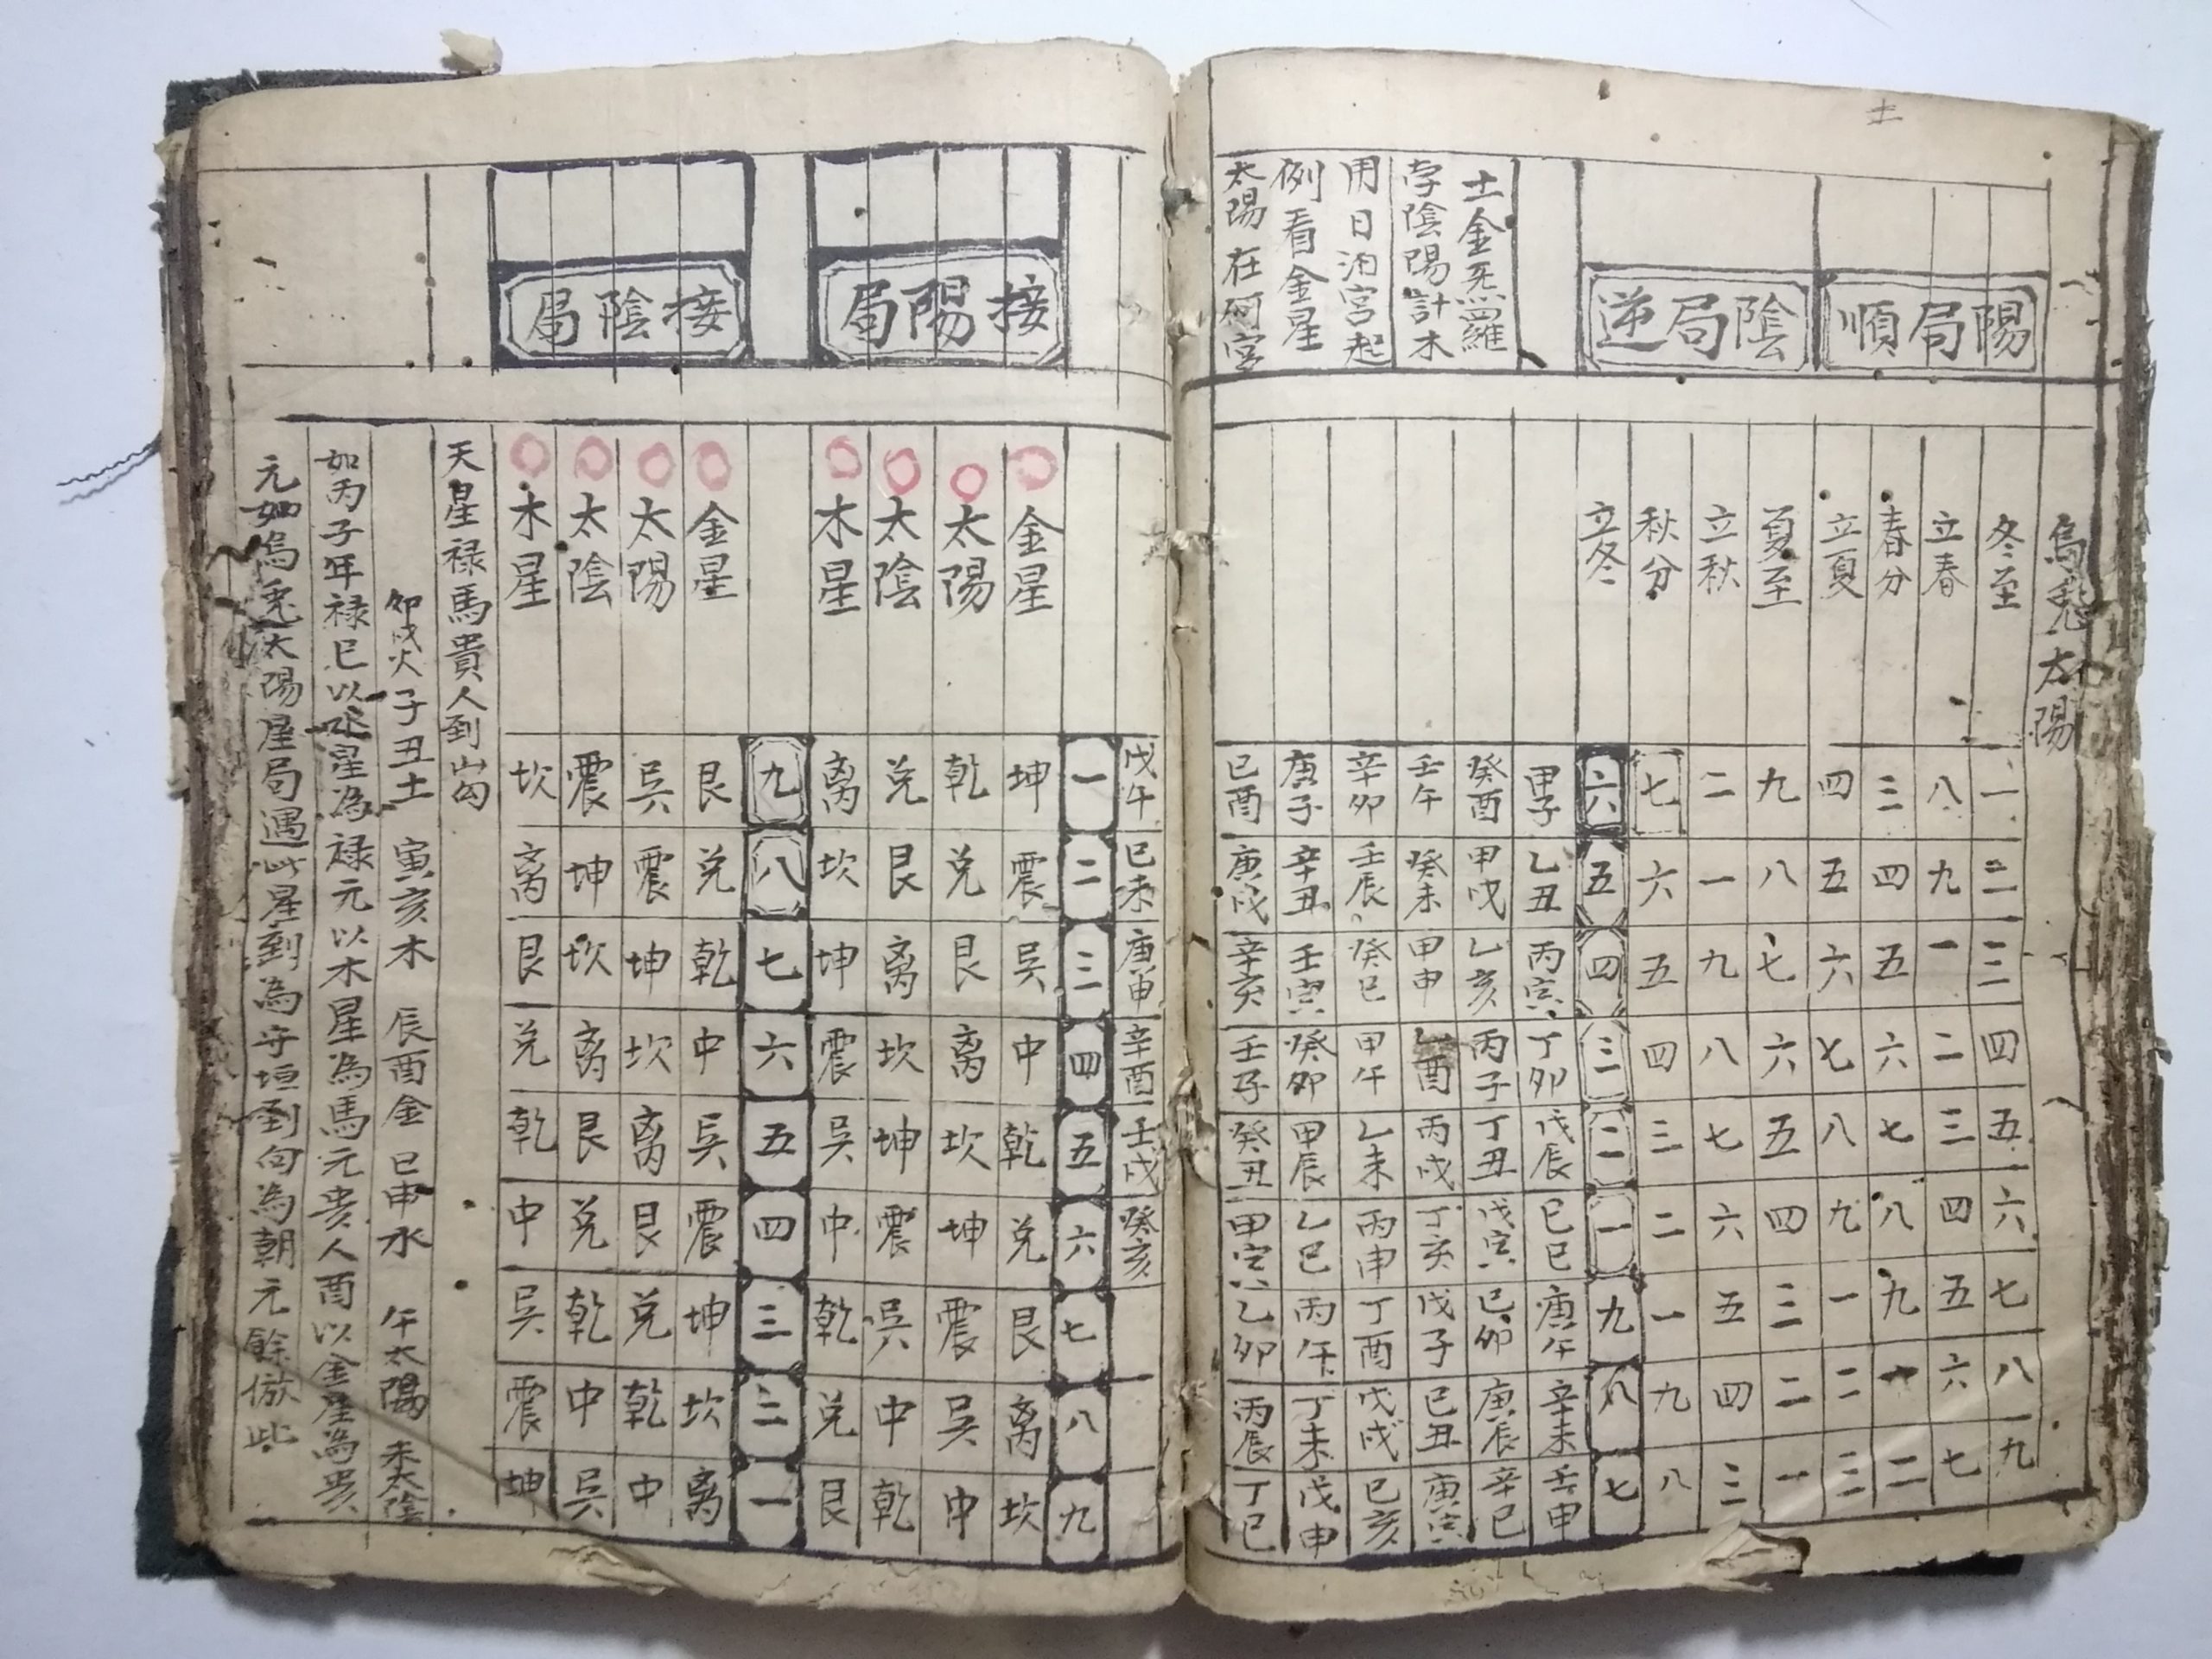 土
烏兔太陽
陽局順
陰局逆
冬至 一 二 三 四 五 六 七 八 九
立春 八 九 一 二 三 四 五 六 七
春分 三 四 五 六 七 八 九 一 二
立夏 四 五 六 七 八 九 一 二 三
夏至 九 八 七 六 五 四 三 二 一
立秋 二 一 九 八 七 六 五 四 三
秋分 七 六 五 四 三 二 一 九 八
立冬 六 五 四 三 二 一 九 八 七
土金炁羅
孛陰陽計木
用日泊宮起
例看金星
太陽在何宮
甲子 乙丑 丙寅 丁卯 戊辰 己巳 庚午 辛未 壬申
癸酉 甲戌 乙亥 丙子 丁丑 戊寅 己卯 庚辰 辛巳
壬午 癸未 甲申 乙酉 丙戌 丁亥 戊子 己丑 庚寅
辛卯 壬辰 癸巳 甲午 乙未 丙申 丁酉 戊戌 己亥
庚子 辛丑 壬寅 癸卯 甲辰 乙巳 丙午 丁未 戊申
己酉 庚戌 辛亥 壬子 癸丑 甲寅 乙卯 丙辰 丁巳
戊午 己未 庚申 辛酉 壬戌 癸亥
一 二 三 四 五 六 七 八 九
接陽局
金星 坤 震 吳 中 乾 兌 艮 离 坎
太陽 乾 兌 艮 离 坎 坤 震 吳 中
太陰 兌 艮 离 坎 坤 震 吳 中 乾
木星 离 坎 坤 震 吳 中 乾 兌 艮
九 八 七 六 五 四 三 二 一
接陰局
金星 艮 兌 乾 中 吳 震 坤 坎 离
太陽 吳 震 坤 坎 离 艮 兌 乾 中
太陰 震 坤 坎 离 艮 兌 乾 中 吳
木星 坎 离 艮 兌 乾 中 吳 震 坤
天星禄馬貴人到山勾
卯戌火子丑土 寅亥木 辰酉金 巳申水 午太陽 未太陰
如丙子年禄巳以水星為禄元以木星為馬元貴人酉以金星為貴
元如烏兔太陽星局遇此星到為守垣到向為朝元餘倣此